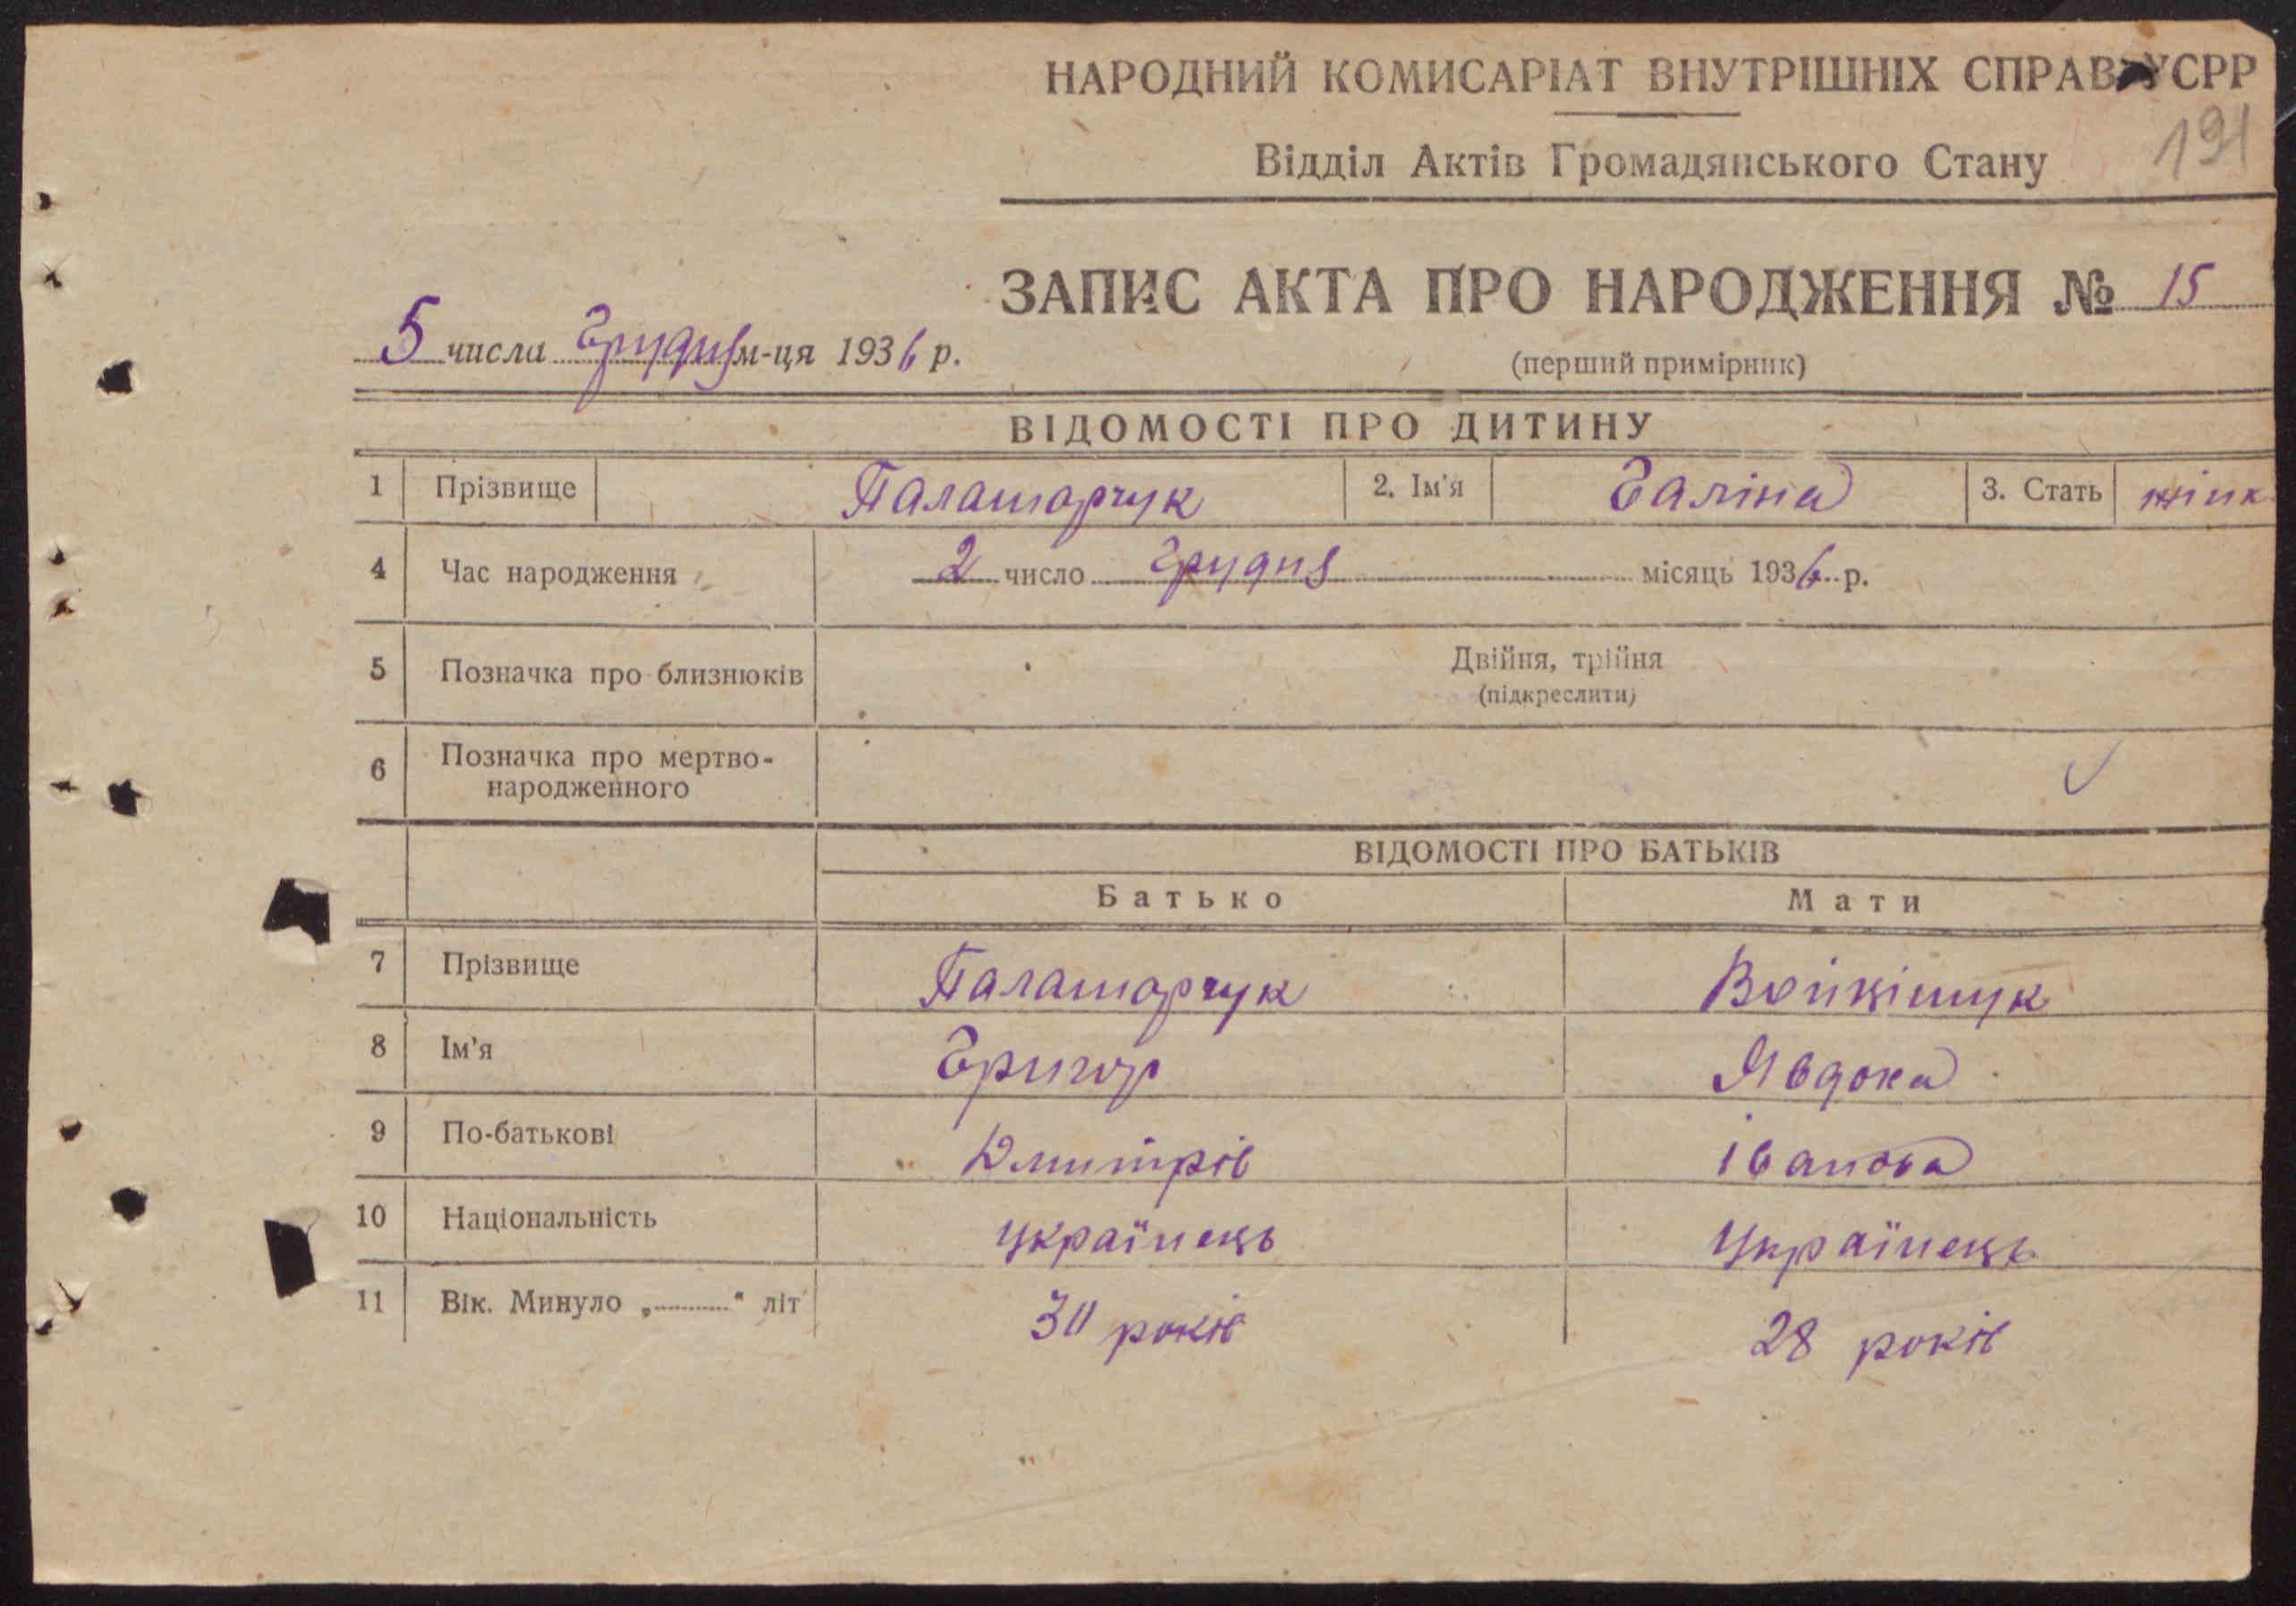 НАРОДНИЙ КОМИСАРІАТ ВНУТРІШНІХ СПРАВ УСРР
191
Відділ Актів Громадянського Стану
ЗАПИС АКТА ПРО НАРОДЖЕННЯ № 15
5 числа Грудня м-ця 1936 р.
(перший примірник)
ВІДОМОСТІ ПРО ДИТИНУ
1 Прізвище Паламарчук 2. Ім'я Галіна 3. Стать жінк
4 Час народження 2 число Грудня місяць 1936 р.
5 Позначка про близнюків Двійня, трійня
(підкреслити)
6 Позначка про мертво-
народженного
ВІДОМОСТІ ПРО БАТЬКІВ
Батько Мати
7 Прізвище Паламарчук
8 Ім'я Григор Явдоха
9 По-батькові Дмитрів Іванова
10 Національність українець Українець
11 Вік. Минуло „----" літ 30 років 28 років